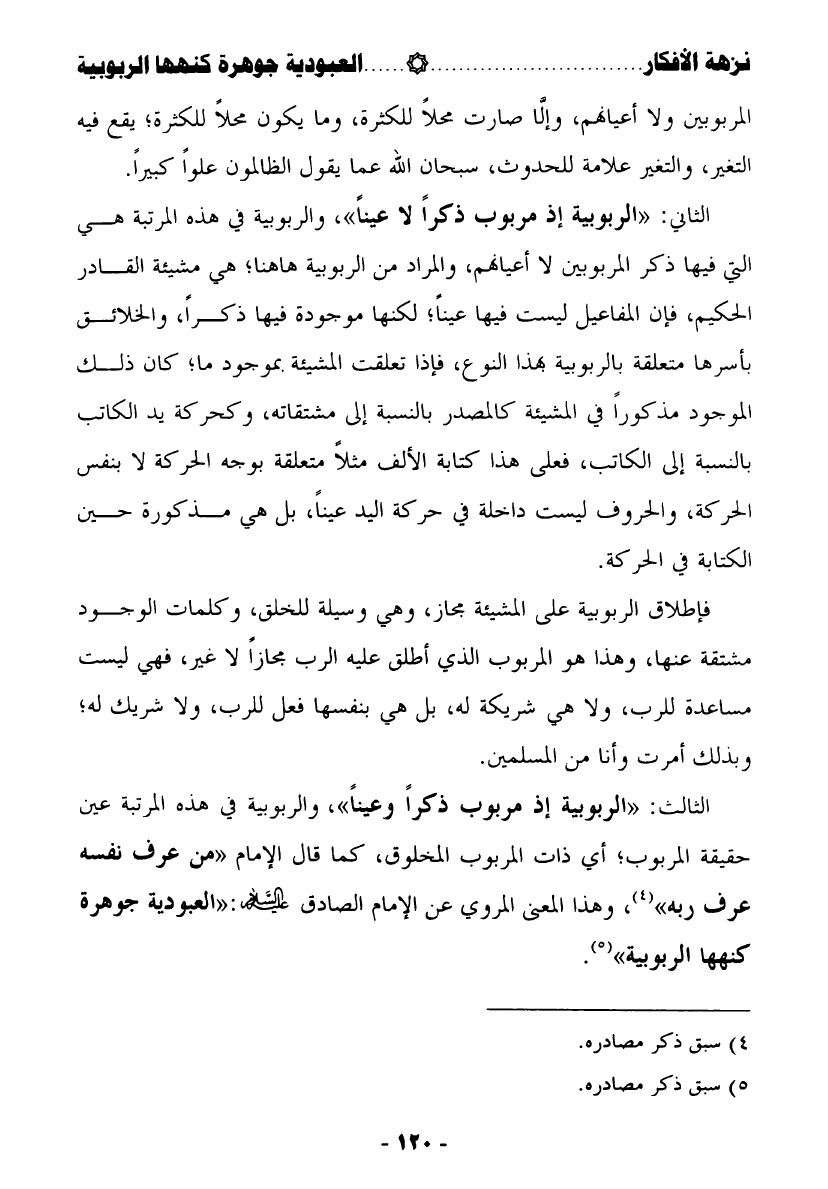 نزهة الأفكار..............................۞......العبودية جوهرة كنهها الربوبية
المربوبين ولا أعيانهم، وإلَّا صارت محلاً للكثرة، وما يكون محلاً للكثرة؛ يقع فيه
التغير، والتغير علامة للحدوث، سبحان الله عما يقول الظالمون علواً كبيراً.
الثاني: «الربوبية إذ مربوب ذكراً لا عيناً»، والربوبية في هذه المرتبة هـــي
التي فيها ذكر المربوبين لا أعيانهم، والمراد من الربوبية هاهنا؛ هي مشيئة القـــادر
الحكيم، فإن المفاعيل ليست فيها عيناً؛ لكنها موجودة فيها ذكـــراً، والخلائـــق
بأسرها متعلقة بالربوبية بهذا النوع، فإذا تعلقت المشيئة بموجود ما؛ كان ذلـــك
الموجود مذكوراً في المشيئة كالمصدر بالنسبة إلى مشتقاته، وكحركة يد الكاتب
بالنسبة إلى الكاتب، فعلى هذا كتابة الألف مثلاً متعلقة بوجه الحركة لا بنفس
الحركة، والحروف ليست داخلة في حركة اليد عيناً، بل هي مـــذكورة حـــين
الكتابة في الحركة.
فإطلاق الربوبية على المشيئة مجاز، وهي وسيلة للخلق، وكلمات الوجـــود
مشتقة عنها، وهذا هو المربوب الذي أطلق عليه الرب مجازاً لا غير، فهي ليست
مساعدة للرب، ولا هي شريكة له، بل هي بنفسها فعل للرب، ولا شريك له؛
وبذلك أمرت وأنا من المسلمين.
الثالث: «الربوبية إذ مربوب ذكراً وعيناً»، والربوبية في هذه المرتبة عين
حقيقة المربوب؛ أي ذات المربوب المخلوق، كما قال الإمام «من عرف نفسه
عرف ربه»(٤)، وهذا المعنى المروي عن الإمام الصادق عليه السلام:«العبودية جوهرة
كنهها الربوبية»(٥).
٤) سبق ذكر مصادره.
٥) سبق ذكر مصادره.
- ١٢٠ -